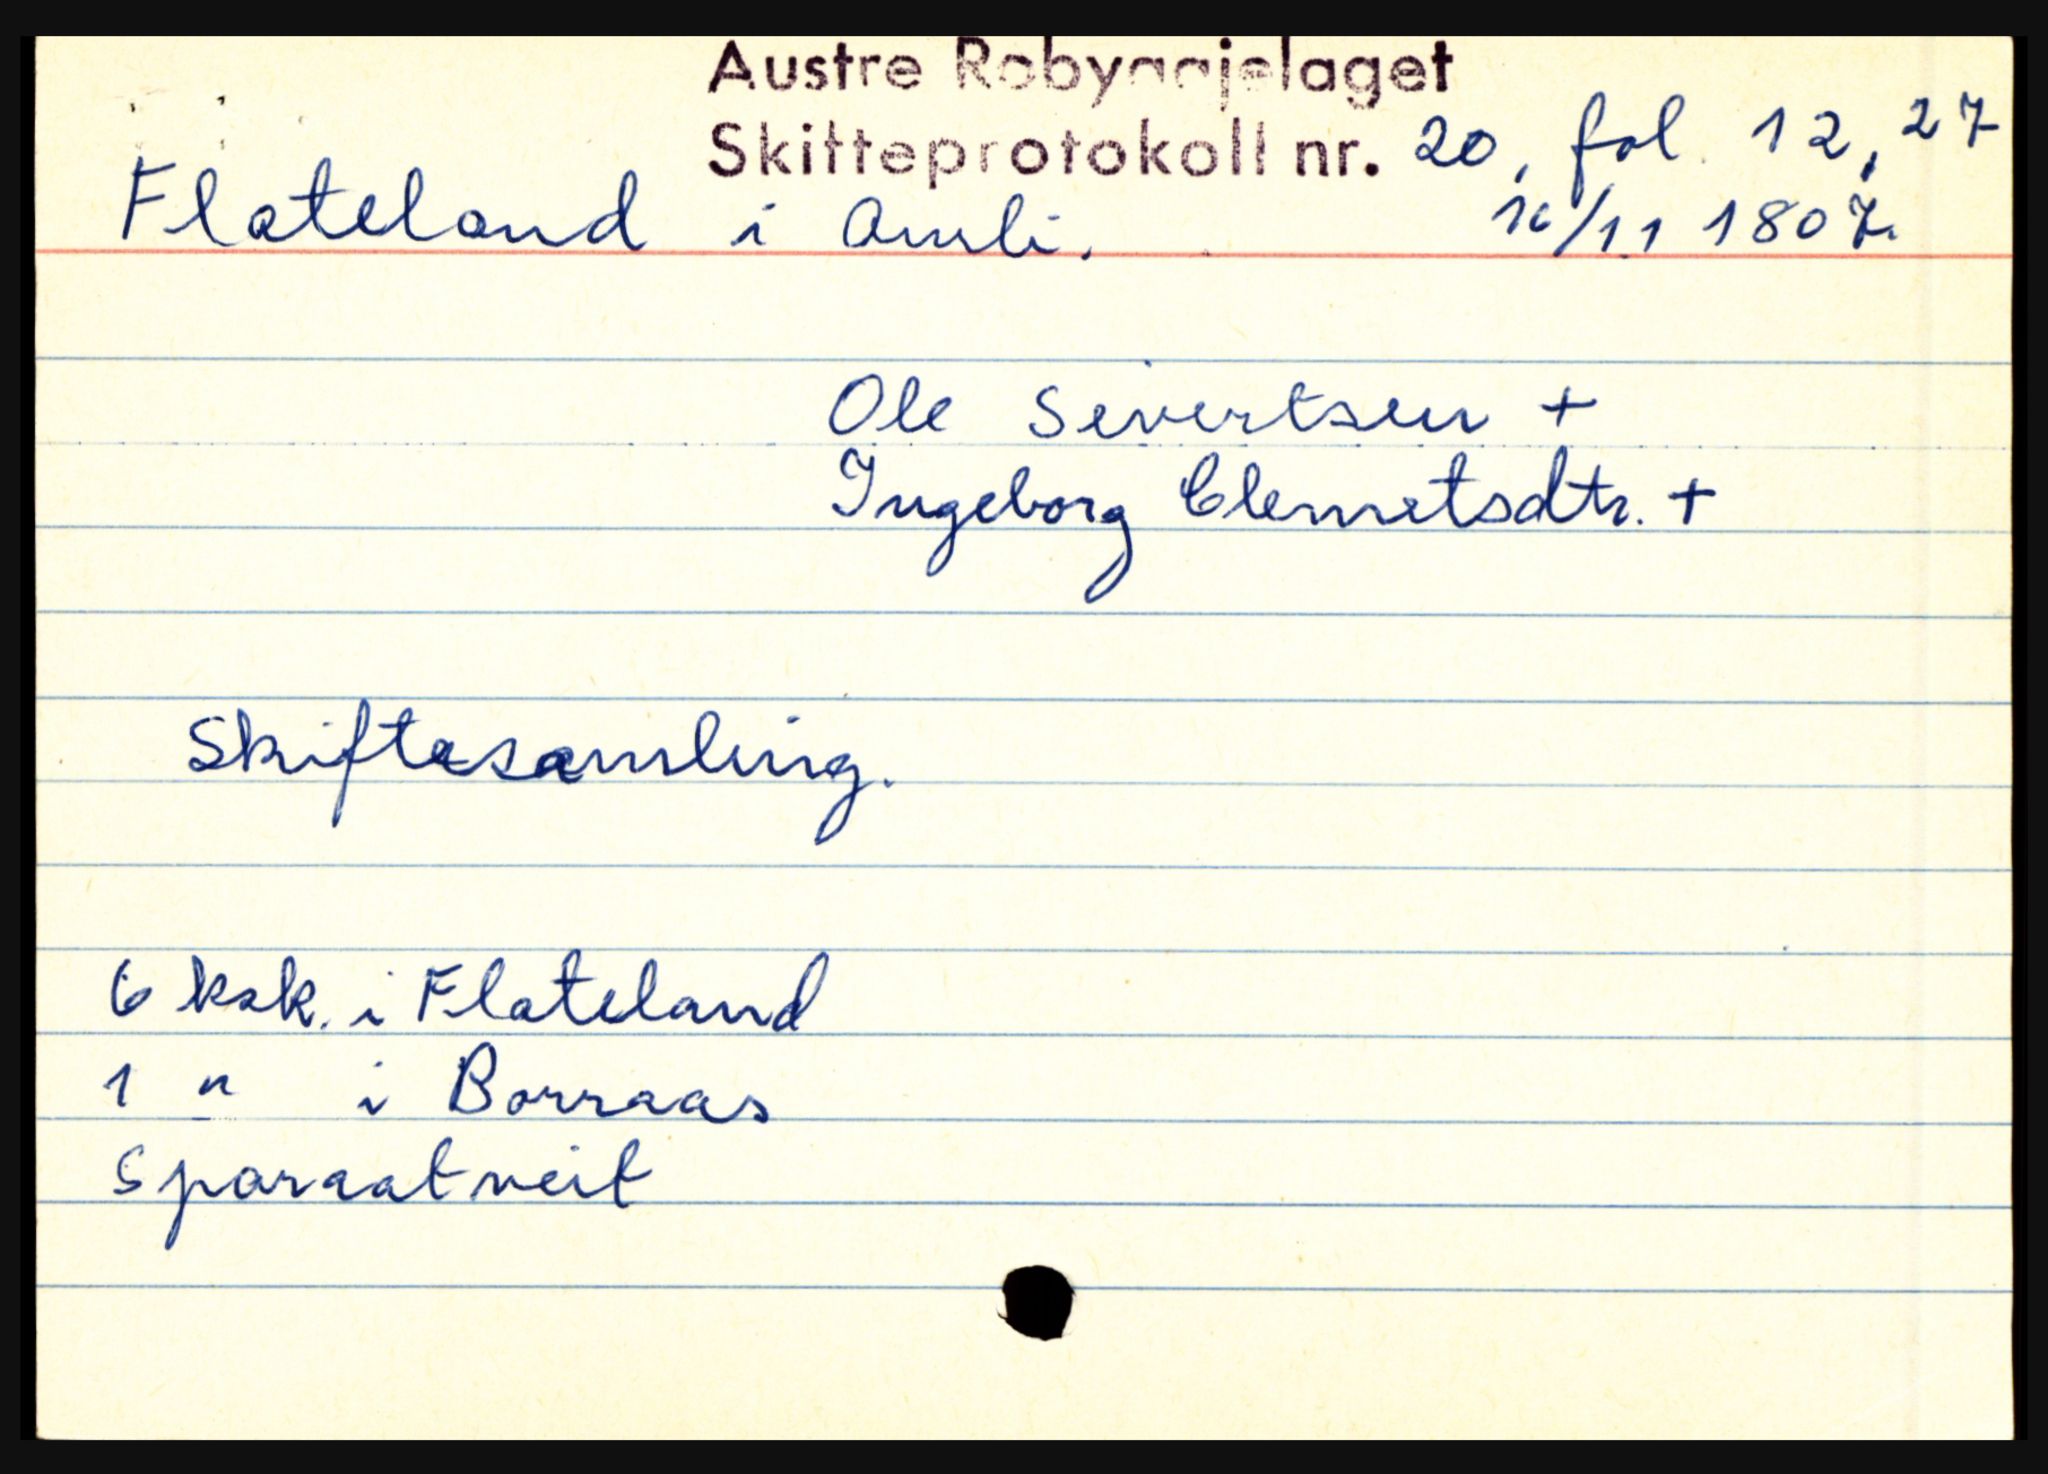 Austre Robyggjelaget
Skifteprotokoll nr. 20, fol. 12, 27
Flateland i Amli. 16/11 1807.
Ole Sivertsen +
Ingeborg Clemetsdtr. +
Skiftesamling.
6 ksk. i Flateland
1 " i Borraas
Sparaatveit